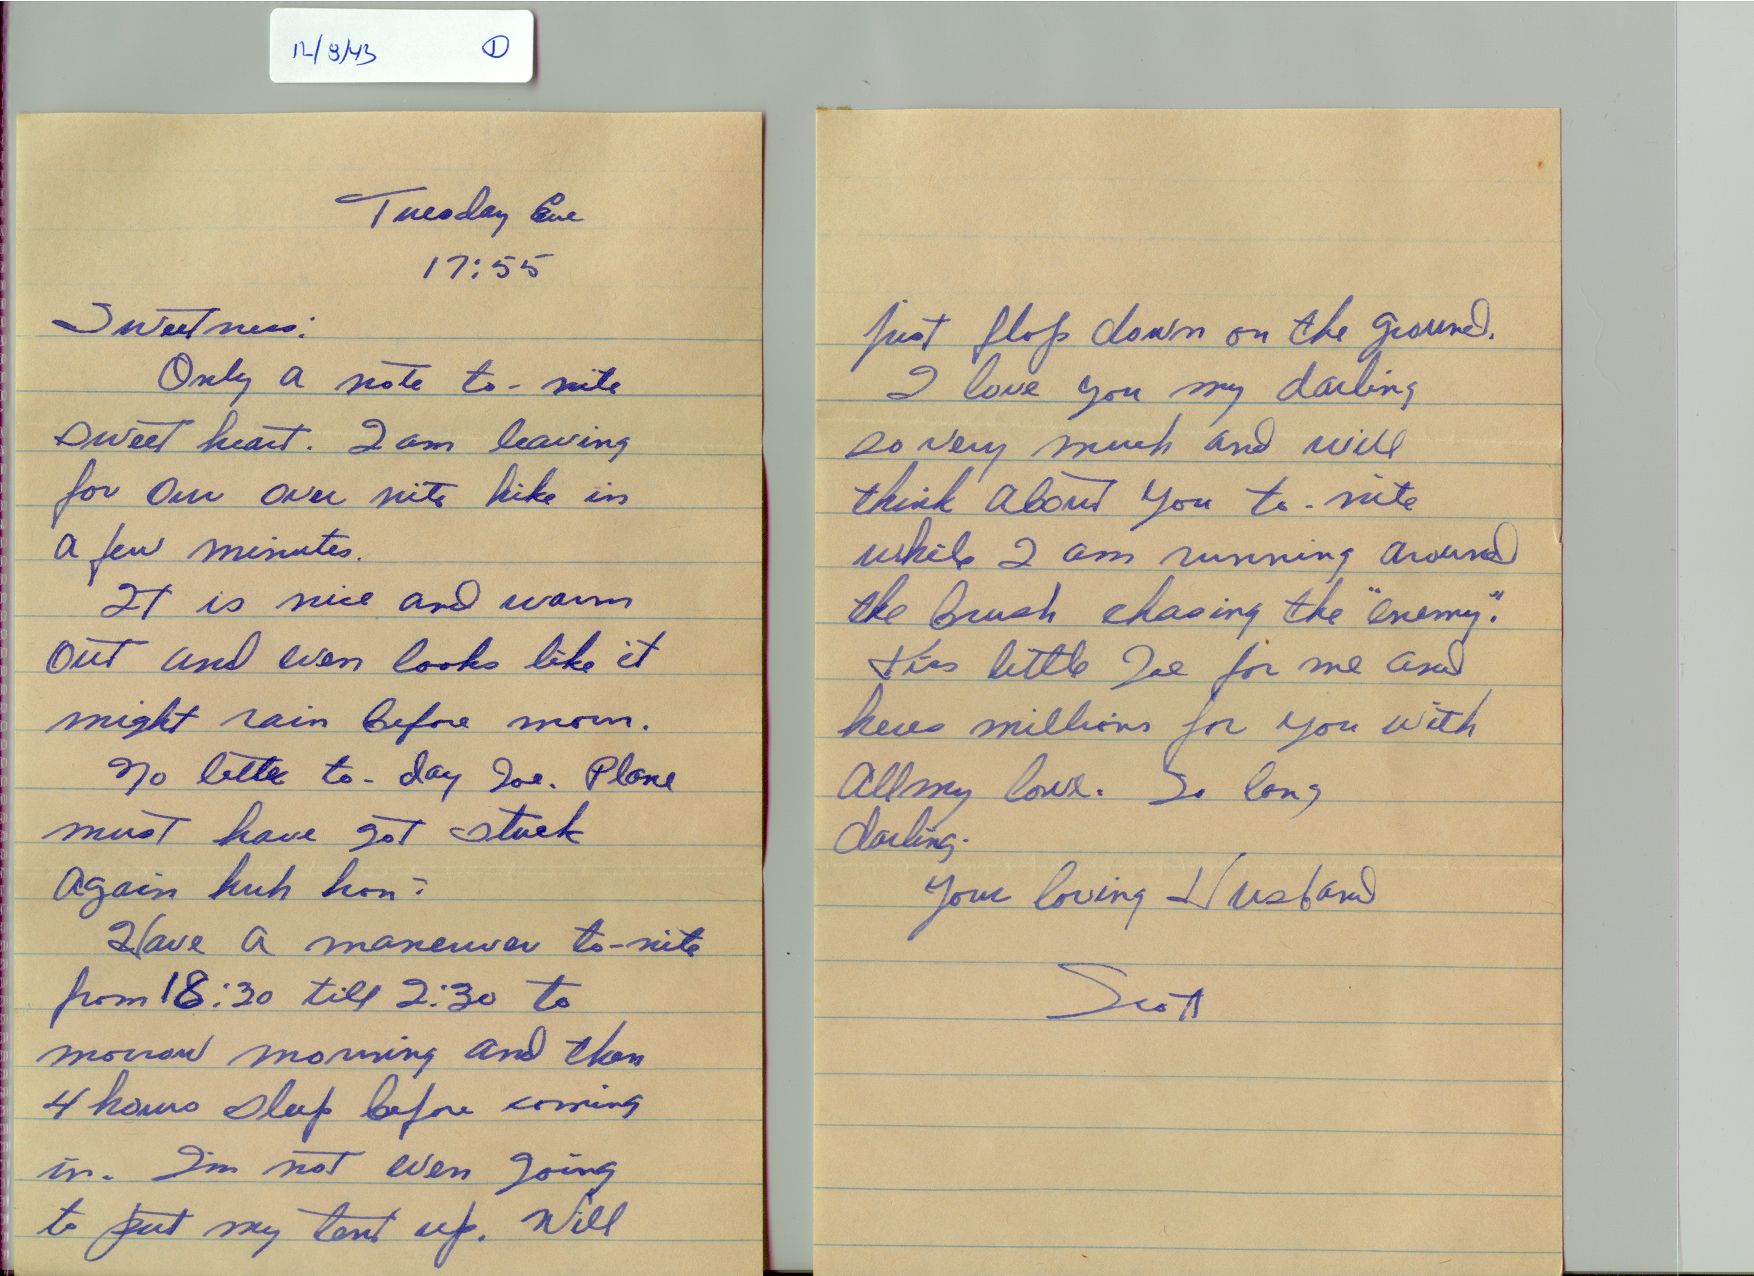 12/8/43 1
Tuesday Eve
17:55
Sweetness:
Only a note to-nite
sweet heart. I am leaving
for our over nite hike in
a few minutes.
It is nice and warm
out and even looks like it
might rain before morn.
No letter to-day Joe. Plane
must have got stuck
again huh hon?
Have a maneuver to-nite
from 18:30 till 2:30 to
morrow morning and then
4 hours sleep before coming
in. I'm not even going
to put my tent up. Will
just flop down on the ground.
I love you my darling
so very much and will
think about you to-nite
while I am running around
the brush chasing the "enemy".
Kiss little Joe for me and
heres millions for you with
all my love. So long
darling.
Your loving Husband
Scott